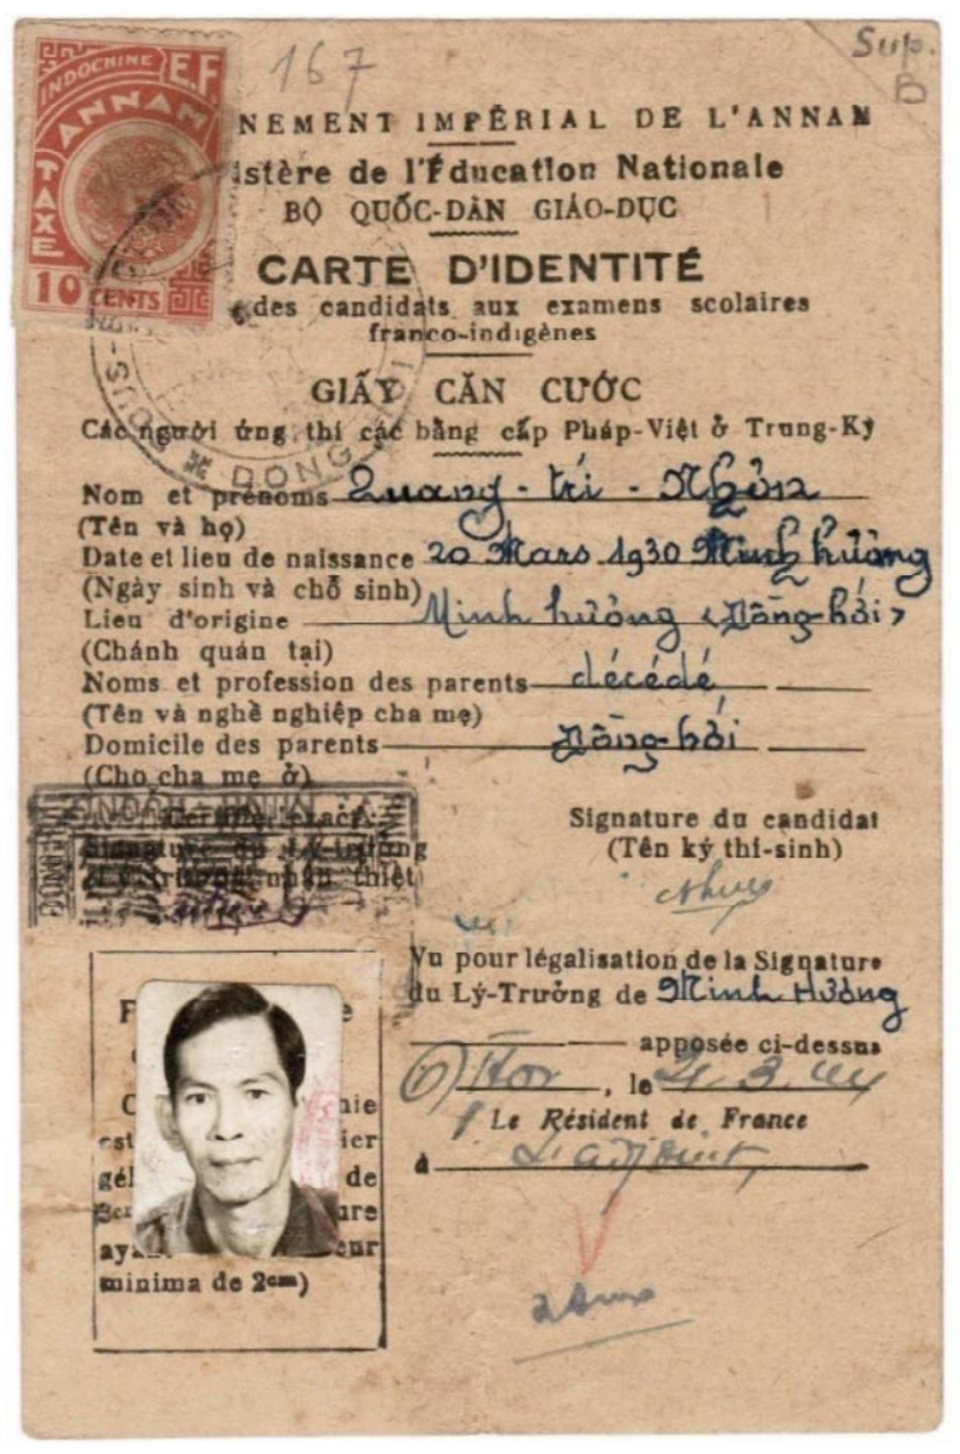 167
Sup.
B
INDOCHINE E.F.
ANNAM
TAXE
10 CENTS
NEMENT IMPÉRIAL DE L'ANNAM
istère de l'Éducation Nationale
BỘ QUỐC-DÂN GIÁO-DỤC
CARTE D'IDENTITÉ
des candidats aux examens scolaires
franco-indigènes
GIẤY CĂN CƯỚC
Các người ứng thí các bằng cấp Pháp-Việt ở Trung-Kỳ
DONG
Nom et prénoms Quang - trí - Nhỏn
(Tên và họ)
Date et lieu de naissance 20 Mars 1930 Minh hương
(Ngày sinh và chỗ sinh)
Lieu d'origine Minh hương (Đồng-hới)
(Chánh quán tại)
Noms et profession des parents décédé
(Tên và nghề nghiệp cha mẹ)
Domicile des parents Đồng-hới
(Cho cha mẹ ở)
Certifié exact:
Signature du Lý-trưởng
(Lý-trưởng nhận thiệt)
Signature du candidat
(Tên ký thi-sinh)
Vu pour légalisation de la Signature
du Lý-Trưởng de Minh Hương
apposée ci-dessus
, le 21.3.44
Le Résident de France
à L'adjoint,
nie
est ier
gél de
ure
aya eur
minima de 2cm)